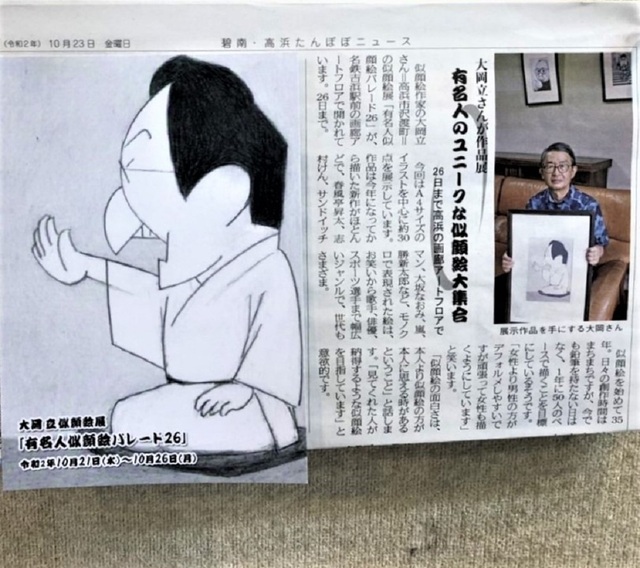 (令和2年) 10月23日 金曜日
碧南・高浜たんぽぽニュース
大岡立さんが作品展
有名人のユニークな似顔絵大集合
26日まで高浜の画廊アートフロアで
似顔絵作家の大岡立
さん=高浜市沢渡町=
の似顔絵展「有名人似
顔絵パレード26」が、
名鉄吉浜駅前の画廊ア
ートフロアで開かれて
います。26日まで。
今回はA4サイズの
イラストを中心に約30
点を展示しています。
作品は今年になってか
ら描いた新作がほとん
どで、春風亭昇太、志
村けん、サンドイッチ
マン、大坂なおみ、嵐、
勝新太郎など、モノク
ロで表現された絵は、
お笑いから歌手、俳優、
スポーツ選手まで幅広
いジャンルで、世代も
さまざま。
展示作品を手にする大岡さん
似顔絵を始めて35
年。日々の制作時間は
まちまちですが、今で
も鉛筆を持たない日は
なく、1年に50人のペ
ースで描くことを目標
にしているそうです。
「女性より男性の方が
デフォルメしやすいで
すが頑張って女性も描
くようにしています」
と笑います。
「似顔絵の面白さは、
本人より似顔絵の方が
本人に思える時がある
ということ」と話しま
す。「見てくれた人が
納得するような似顔絵
を目指しています」と
意欲的です。
大岡立似顔絵展
「有名人似顔絵パレード26」
令和2年10月21日(水)〜10月26日(月)